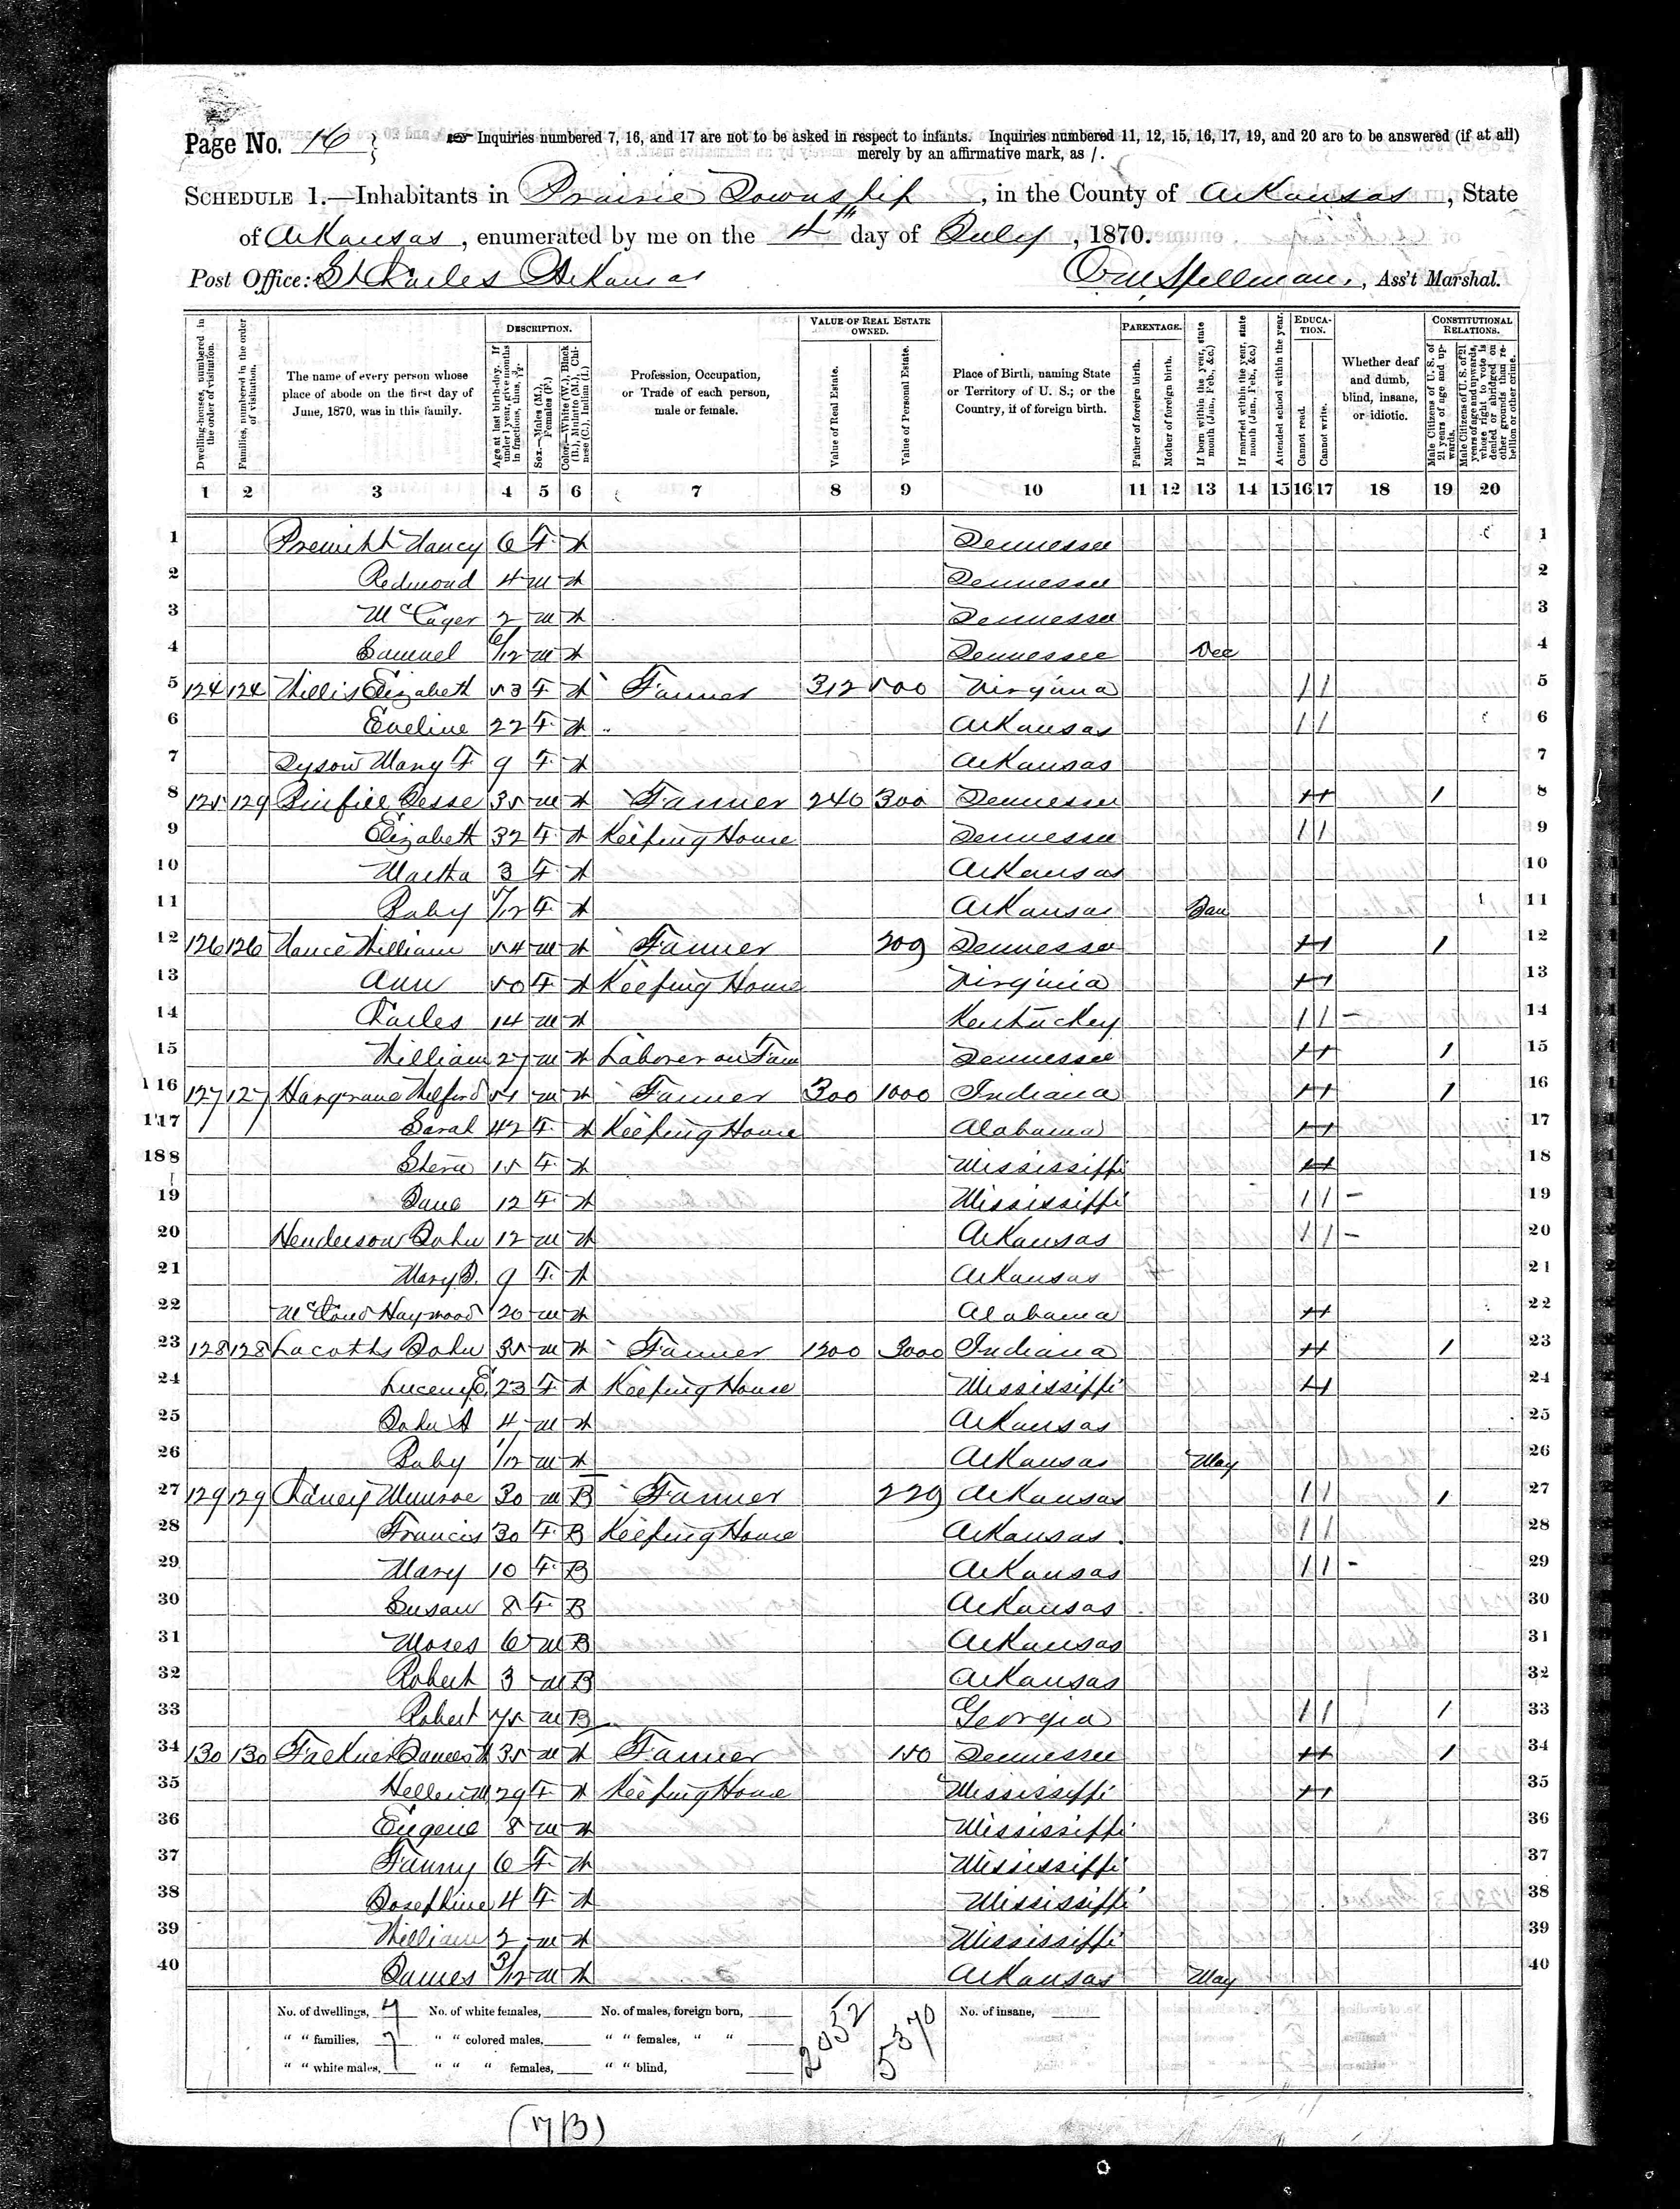 Page No. 16
Inquiries numbered 7, 16, and 17 are not to be asked in respect to infants. Inquiries numbered 11, 12, 15, 16, 17, 19, and 20 are to be answered (if at all)
merely by an affirmative mark, as /.
SCHEDULE 1.—Inhabitants in Prairie Township, in the County of Arkansas, State
of Arkansas, enumerated by me on the 4th day of July, 1870.
Post Office: St Charles Arkansas Spellman, Ass't Marshal.
Dwelling-houses, numbered in the order of visitation.
Families, numbered in the order of visitation.
The name of every person whose place of abode on the first day of June, 1870, was in this family.
DESCRIPTION.
Age at last birth-day. If under 1 year, give months in fractions, thus, 3/12.
Sex.—Males (M.), Females (F.)
Color.—White (W.), Black (B.), Mulatto (M.), Chinese (C.), Indian (I.)
Profession, Occupation, or Trade of each person, male or female.
VALUE OF REAL ESTATE OWNED.
Value of Real Estate.
Value of Personal Estate.
Place of Birth, naming State or Territory of U. S.; or the Country, if of foreign birth.
PARENTAGE.
Father of foreign birth.
Mother of foreign birth.
If born within the year, state month (Jan., Feb., &c.)
If married within the year, state month (Jan., Feb., &c.)
Attended school within the year.
EDUCATION.
Cannot read.
Cannot write.
Whether deaf and dumb, blind, insane, or idiotic.
CONSTITUTIONAL RELATIONS.
Male Citizens of U. S. of 21 years of age and upwards.
Male Citizens of U. S. of 21 years of age and upwards, whose right to vote is denied or abridged on other grounds than rebellion or other crime.
1 2 3 4 5 6 7 8 9 10 11 12 13 14 15 16 17 18 19 20
1 Nancy 6 F W Tennessee 1
2 Redmond 4 M W Tennessee 2
3 McCager 2 M W Tennessee 3
4 Samuel 6/12 M W Tennessee Dec 4
5 124 124 Willis Elizabeth 53 F W Farmer 312 500 Virginia / / 5
6 Eveline 22 F W Arkansas / / 6
7 Tyson Mary F 9 F W Arkansas 7
8 125 129 Jesse 35 M W Farmer 240 300 Tennessee 1 8
9 Elizabeth 32 F W Keeping House Tennessee / / 9
10 Martha 3 F W Arkansas 10
11 Baby /12 F W Arkansas Jan 11
12 126 126 William 54 M W Farmer 209 Tennessee 1 12
13 Ann 50 F W Keeping House Virginia 13
14 Charles 14 M W Kentucky / / – 14
15 William 27 M W Laborer on Farm Tennessee 1 15
16 127 127 Hargrave Milford 51 M W Farmer 300 1000 Indiana 1 16
17 Sarah 42 F W Keeping House Alabama 17
18 15 F W Mississippi 18
19 Jane 12 F W Mississippi / / – 19
20 Henderson John 12 M W Arkansas / / – 20
21 Mary J. 9 F W Arkansas 21
22 McCloud Haywood 20 M W Alabama 22
23 128 128 Lacotts John 35 M W Farmer 1200 3000 Indiana 1 23
24 E. 23 F W Keeping House Mississippi 24
25 John A 4 M W Arkansas 25
26 Baby 1/12 M W Arkansas May 26
27 129 129 Chaney Munroe 30 M B Farmer 229 Arkansas / / 1 27
28 Francis 30 F B Keeping House Arkansas / / 28
29 Mary 10 F B Arkansas / / – 29
30 Susan 8 F B Arkansas 30
31 Moses 6 M B Arkansas 31
32 Robert 3 M B Arkansas 32
33 Robert 75 M B Georgia / / 1 33
34 130 130 Falkner James 35 M W Farmer 150 Tennessee 1 34
35 Hellen M 29 F W Keeping House Mississippi 35
36 Eugene 8 M W Mississippi 36
37 Fanny 6 F W Mississippi 37
38 Josephine 4 F W Mississippi 38
39 William 2 M W Mississippi 39
40 James 3/12 M W Arkansas May 40
No. of dwellings, 7 No. of white females, No. of males, foreign born, 2052 5370 No. of insane,
" " families, 7 " " colored males, " " females, " "
" " white males, " " " females, " " blind,
(7/B)